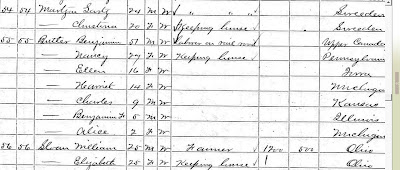 54 54 Gust 24 M W " " " Sweeden
Christina 20 F W Keeping house Sweeden
55 55 Butler Benjamin 51 M W Labor on rail road Upper Canada
— Nancy F W Keeping house Pennsylvania
— Ellen 16 F W Iowa
— Harriet 14 F W Michigan
— Charles 9 M W Kansas
— Benjamin F 5 M W Illinois
— Alice 2 F W Michigan
56 56 Sloan William 25 M W Farmer 1700 500 Ohio
— Elizabeth 25 F W Keeping house Ohio